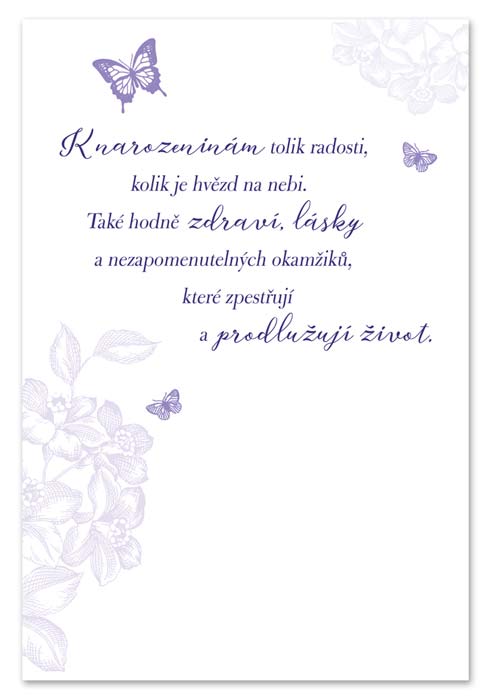 K narozeninám tolik radosti,
kolik je hvězd na nebi.
Také hodně zdraví, lásky
a nezapomenutelných okamžiků,
které zpestřují
a prodlužují život.